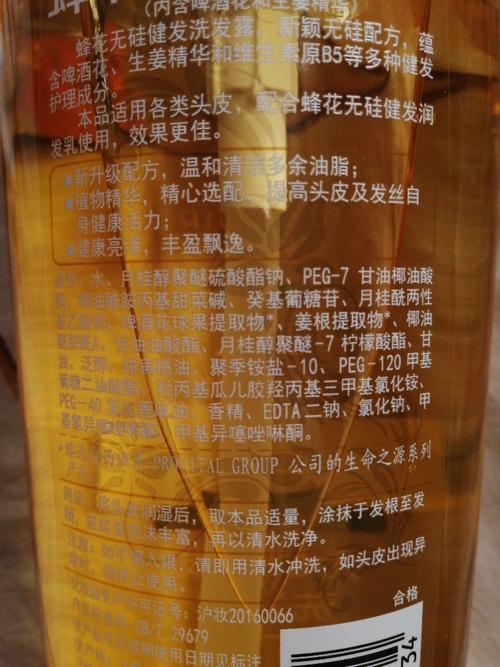 (内含啤酒花和生姜精华)
蜂花无硅健发洗发露，新颖无硅配方，蕴
含啤酒花、生姜精华和维生素原B5等多种健发
护理成分。
本品适用各类头皮，配合蜂花无硅健发润
发乳使用，效果更佳。
●新升级配方，温和清洁多余油脂；
●植物精华，精心选配，提高头皮及发丝自
身健康活力；
●健康亮泽，丰盈飘逸。
成分：水、月桂醇聚醚硫酸酯钠、PEG-7 甘油椰油酸
酯、椰油酰胺丙基甜菜碱、癸基葡糖苷、月桂酰两性
基乙酸钠、啤酒花球果提取物*、姜根提取物*、椰油
酰胺MEA、甘油油酸酯、月桂醇聚醚-7 柠檬酸酯、甘
油、泛醇、甜扁桃油、聚季铵盐-10、PEG-120 甲基
葡糖二油酸酯、羟丙基瓜儿胶羟丙基三甲基氯化铵、
PEG-40 氢化蓖麻油、香精、EDTA 二钠、氯化钠、甲
基氯异噻唑啉酮、甲基异噻唑啉酮。
PROVITAL GROUP 公司的生命之源系列
产品
用法：将头发润湿后，取本品适量，涂抹于发根至发
梢，轻揉至泡沫丰富，再以清水洗净。
注意：如不慎入眼，请即用清水冲洗，如头皮出现异
常时，请停止使用。
化妆品生产许可证号：沪妆20160066
产品标准号：GB/T 29679
生产批号及限期使用日期见标注
合格
34